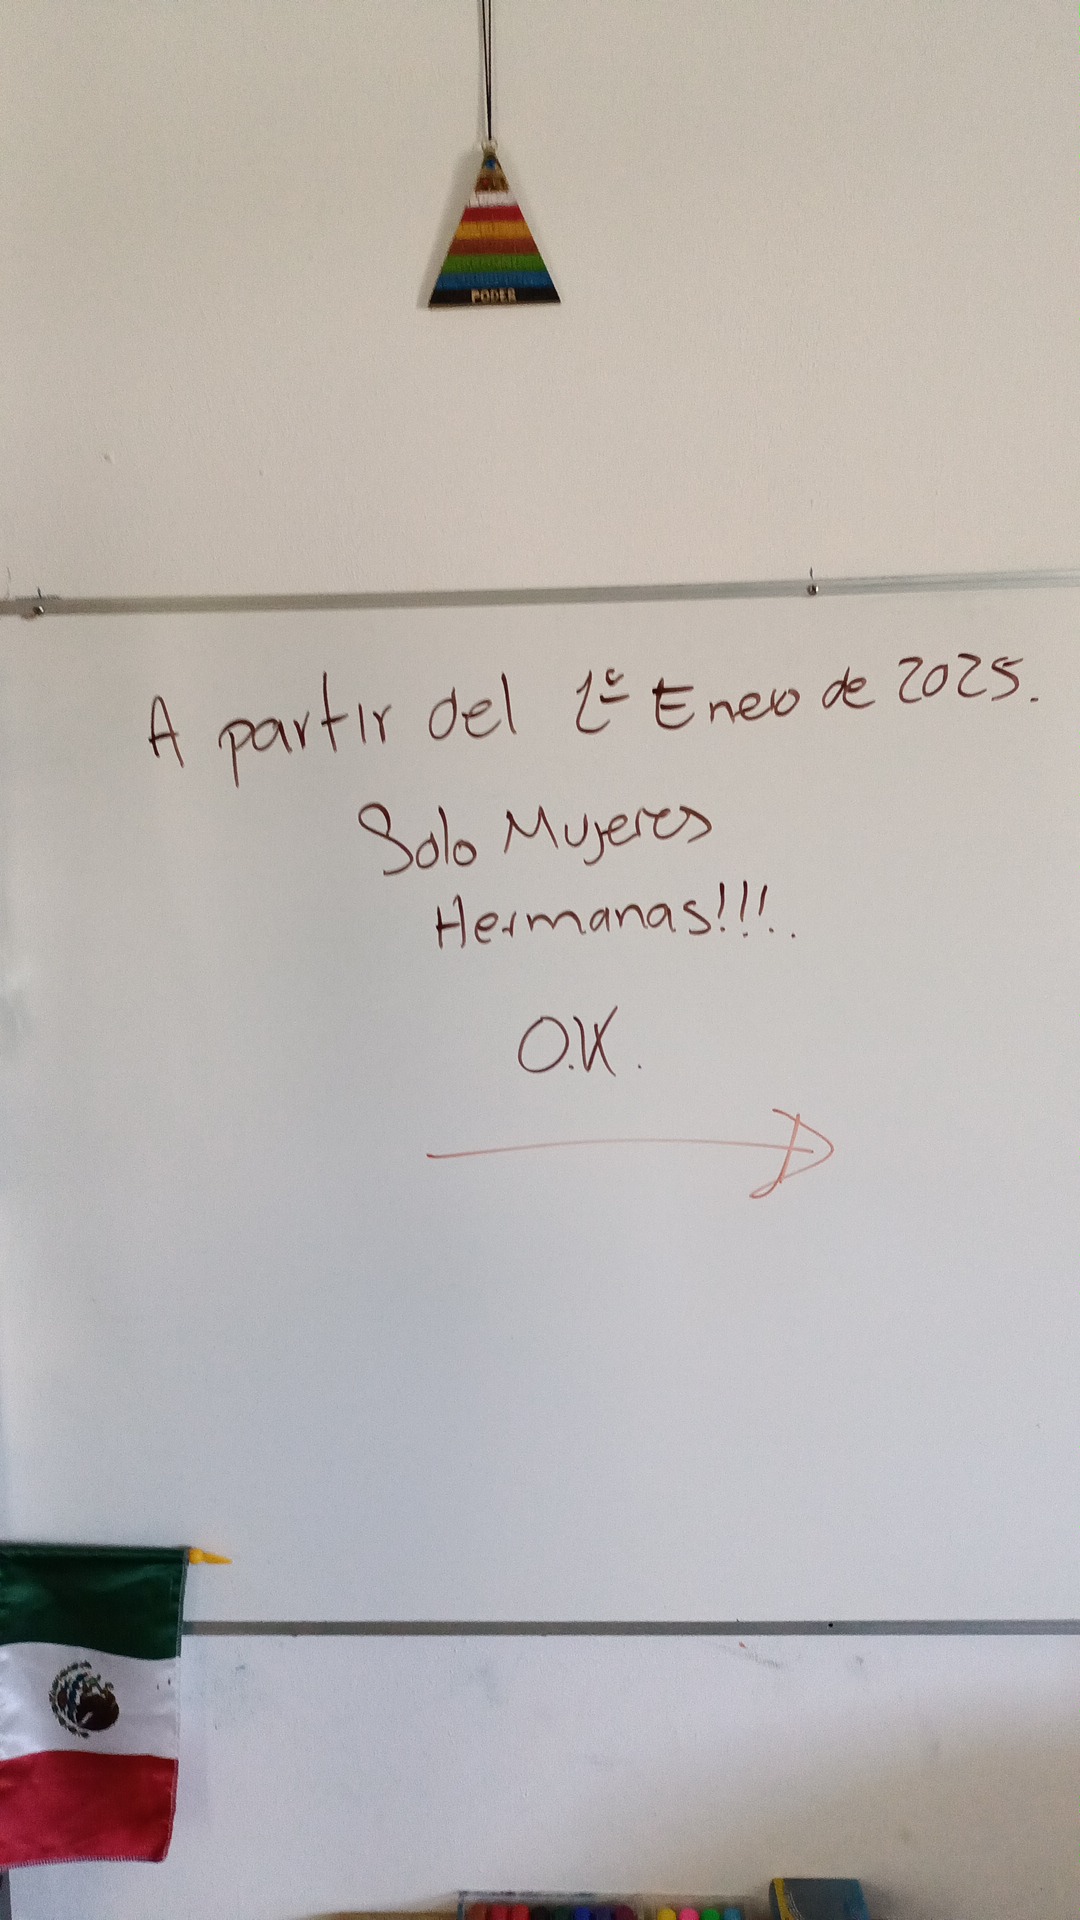 PODER
A partir del 1º Enero de 2025.
Solo Mujeres
Hermanas!!!.
O.K.